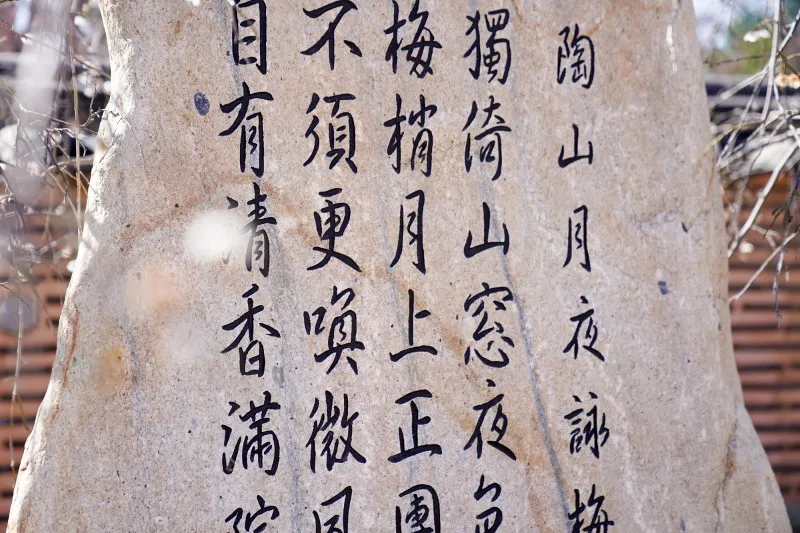 陶山月夜詠梅
獨倚山窓夜色
梅梢月上正團
不須更喚微風
自有清香滿院